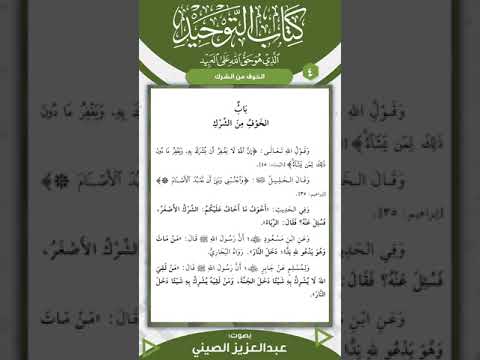 كِتَابُ التَّوْحِيدِ
الَّذِي هُوَ حَقُّ اللَّهِ عَلَى الْعَبِيدِ
٤
الخوف من الشرك
بَابُ
الخَوْفُ مِنَ الشِّرْكِ
وَقَوْلِ اللهِ تَعَالَى: ﴿إِنَّ اللَّهَ لَا يَغْفِرُ أَنْ يُشْرَكَ بِهِ وَيَغْفِرُ مَا دُونَ
ذَلِكَ لِمَنْ يَشَاءُ﴾ [النساء: ٤٨].
وَقَالَ الخَلِيلُ ﷺ: ﴿وَاجْنُبْنِي وَبَنِيَّ أَنْ نَعْبُدَ الْأَصْنَامَ﴾
[إبراهيم: ٣٥].
وَفِي الحَدِيثِ: «أَخْوَفُ مَا أَخَافُ عَلَيْكُمْ: الشِّرْكُ الأَصْغَرُ،
فَسُئِلَ عَنْهُ؟ فَقَالَ: الرِّيَاءُ».
وَعَنِ ابْنِ مَسْعُودٍ ؓ؛ أَنَّ رَسُولَ اللهِ ﷺ قَالَ: «مَنْ مَاتَ
وَهُوَ يَدْعُو لِلَّهِ نِدًّا؛ دَخَلَ النَّارَ». رَوَاهُ البُخَارِيُّ.
وَلِمُسْلِمٍ عَنْ جَابِرٍ ؓ؛ أَنَّ رَسُولَ اللهِ ﷺ قَالَ: «مَنْ لَقِيَ
اللهَ لَا يُشْرِكُ بِهِ شَيْئًا دَخَلَ الجَنَّةَ، وَمَنْ لَقِيَهُ يُشْرِكُ بِهِ شَيْئًا دَخَلَ
النَّارَ».
بصوت:
عبدالعزيز الصيني